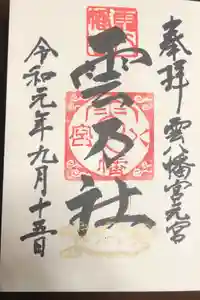 奉拝 雲八幡宮元宮
雲乃社
令和元年九月十五日